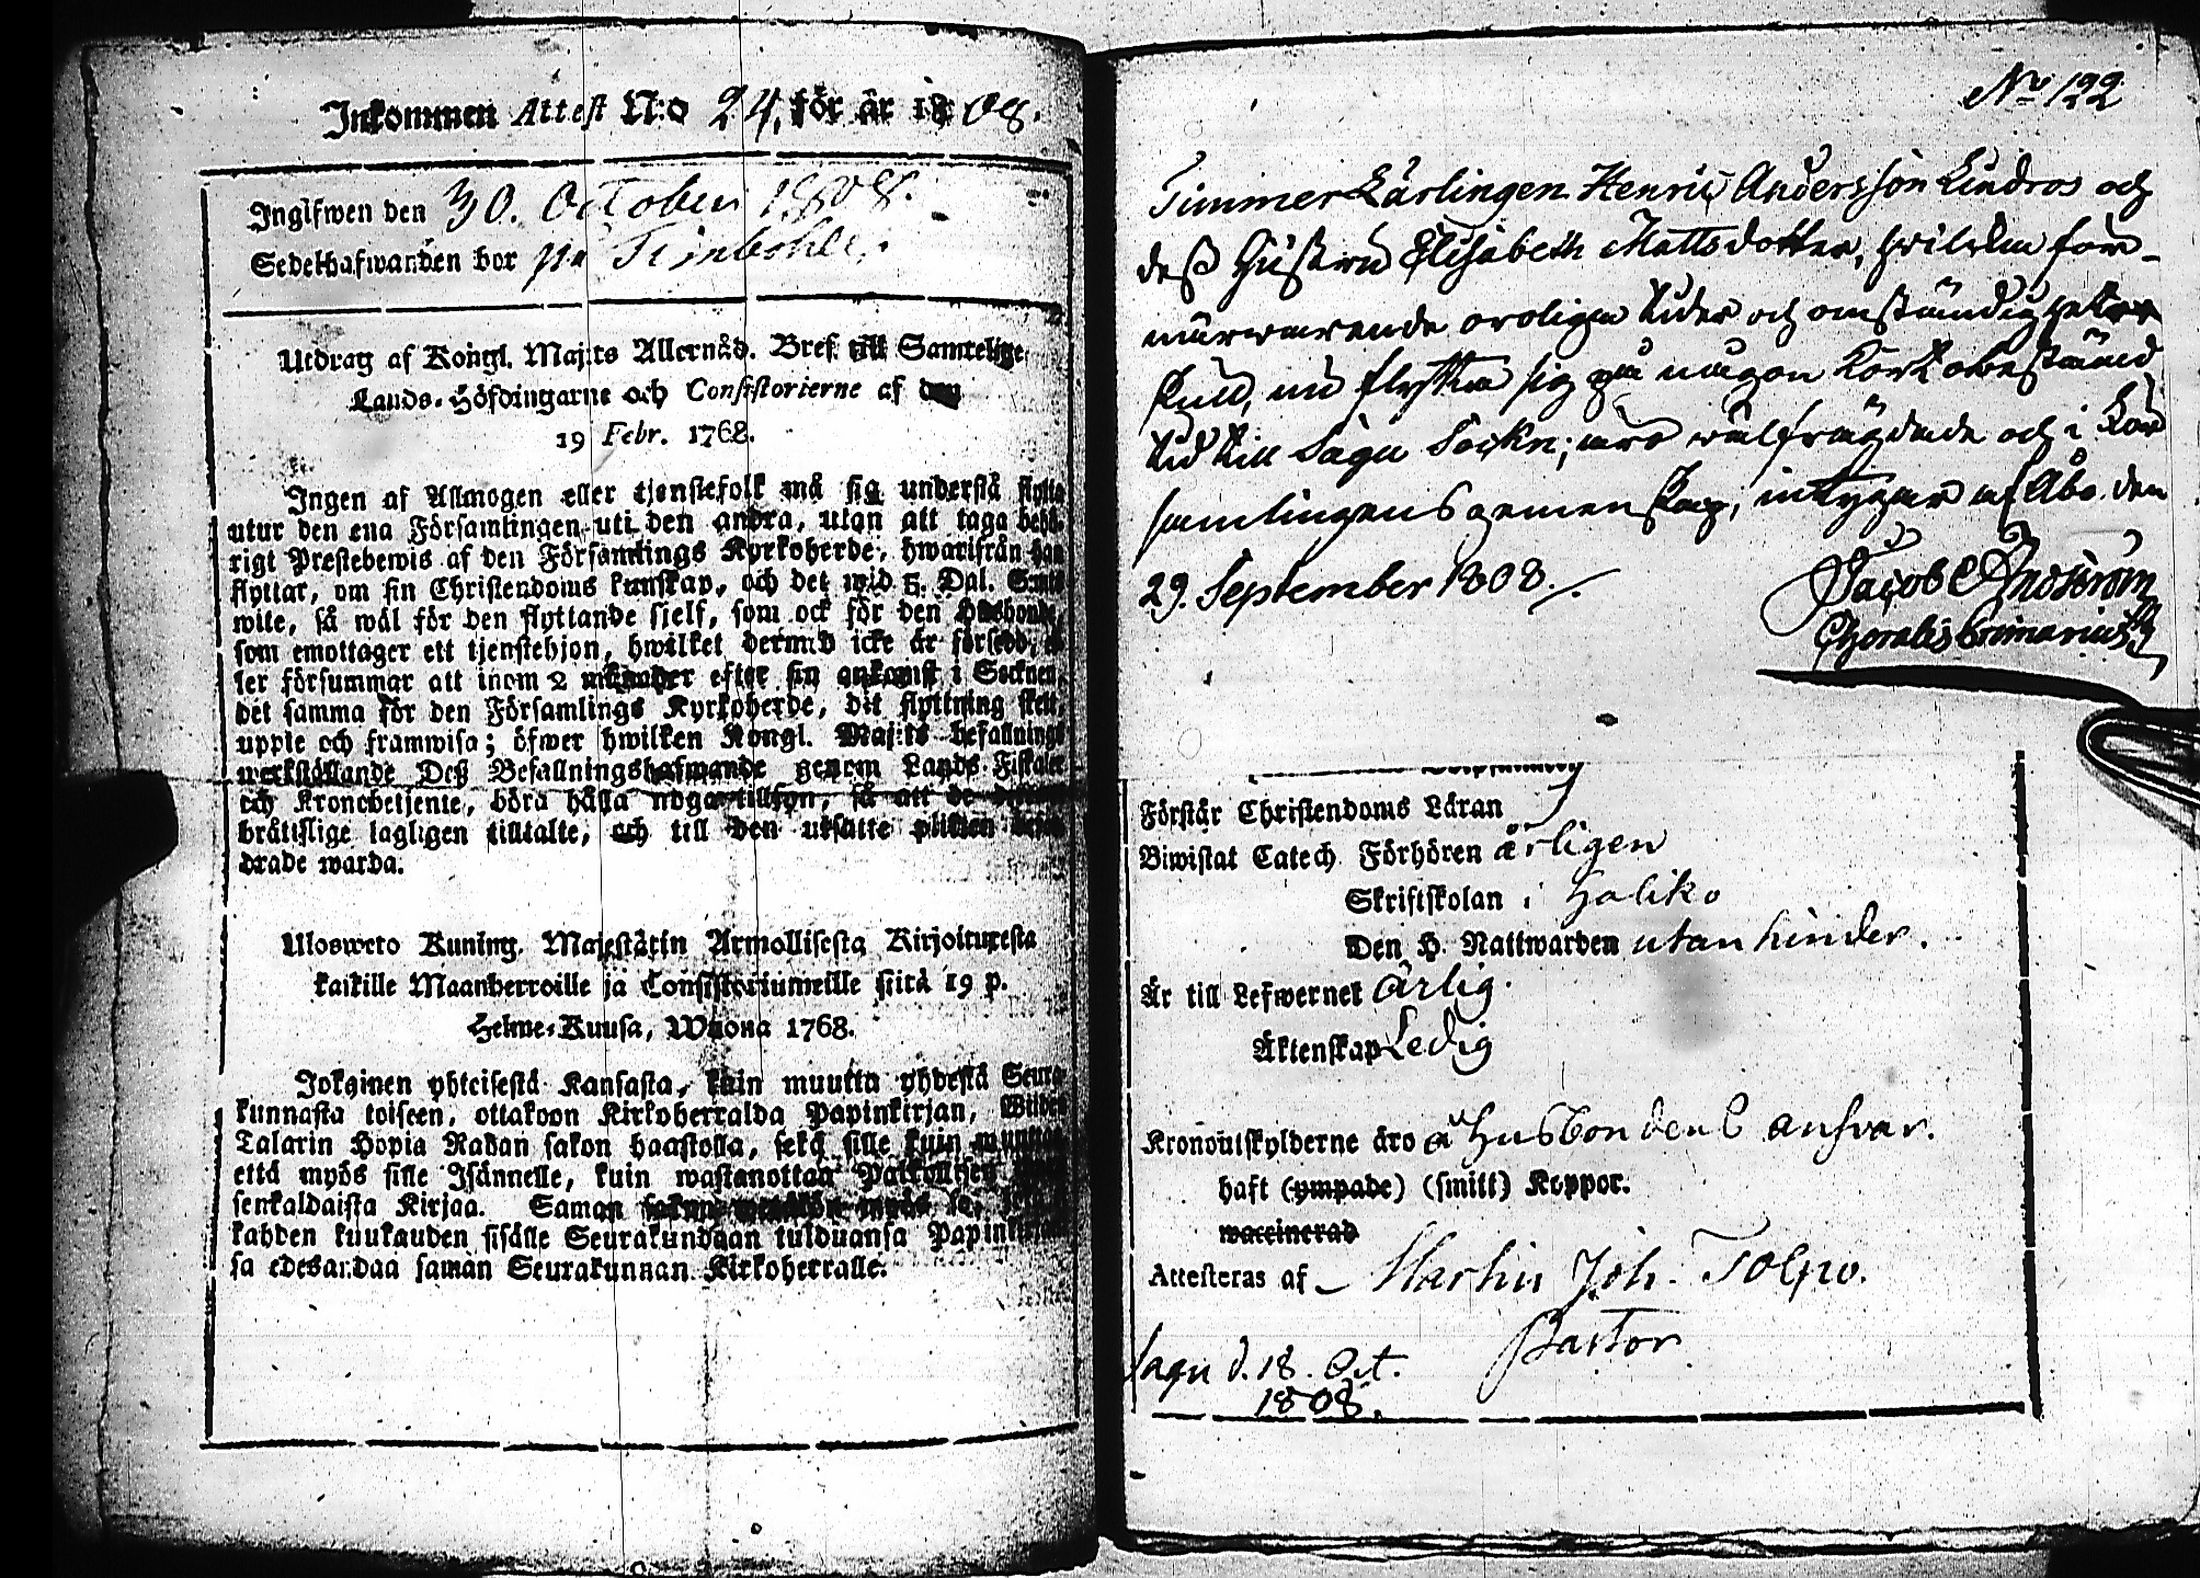 Inkommen Attest N:o 24, för år 1808.
Ingifwen den 30. October 1808.
Sedelhafwanden bor på
Utdrag af Kongl. Maj:ts Allernåd. Bref till Samtelige
Lands-Höfdingarne och Consistorierne af den
19 Febr. 1768.
Ingen af Allmogen eller tjenstefolk må sig understå flytta
utur den ena Församlingen uti den andra, utan att taga behö-
rigt Prestebewis af den Församlings Kyrkoherde, hwarifrån han
flyttar, om sin Christendoms kunskap, och det wid 5. Dal. S:mts
wite, så wäl för den flyttande sjelf, som ock för den Husbonde,
som emottager ett tjenstehjon, hwilket dermed icke är försedd, el-
ler försummar att inom 2 månader efter sin ankomst i Socknen,
det samma för den Församlings Kyrkoherde, dit flyttning sker,
uppte och framwisa; öfwer hwilken Kongl. Maj:ts befallnings
werkställande Deß Befallningshafwande genom Lands-Fiskaler
och Kronobetjente, böra hålla noga tillsyn, så att de
bråtislige lagligen tilltalte, och till den utsatte plikten
drade warda.
Ulosweto Kuning. Majestätin Armollisesta Kirjoituxesta
kaikille Maanherroille ja Consistoriumeille siitä 19 p.
Helme-Kuusa, Wuona 1768.
Jokainen yhteisestä Kansasta, kuin muutta yhdestä Seura-
kunnasta toiseen, ottakoon Kirkoherralda Papinkirjan, Wiiden
Talarin Hopia Rahan sakon haastolla, sekä sille kuin muuttaa
että myös sille Isännelle, kuin wastanottaa Palkollisen
senkaldaista Kirjaa. Saman
kahden kuukauden sisälle Seurakundaan tulduansa Papinkirjan-
sa edesandaa saman Seurakunnan Kirkoherralle.
No 122
Timmerkärlingen Henric Andersson Lindros och
deß Hustru Elisabeth Mattsdotter, hvilka för
närwarande oroliga tider och omständigheter
skull, nu flytta sig på någon kort obestämd
tid till Sagu Sockn; äro wälfrägdade och i För
samlingens gemenskap, intygar af Åbo den
29. September 1808.
Jacob
Choralis primarius
Förstår Christendoms Läran
Biwistat Catech Förhören årligen
Skriftskolan i Haliko
Den H. Nattwarden utan hinder.
Är till Lefwernet Ärlig.
Äktenskap Ledig
Kronoutskylderne äro å Husbondens answar.
haft (ympade) (smitt) Koppor.
waccinerad
Attesteras af Martin Joh. Tolpo.
Pastor
Sagu d. 18. Oct.
1808.